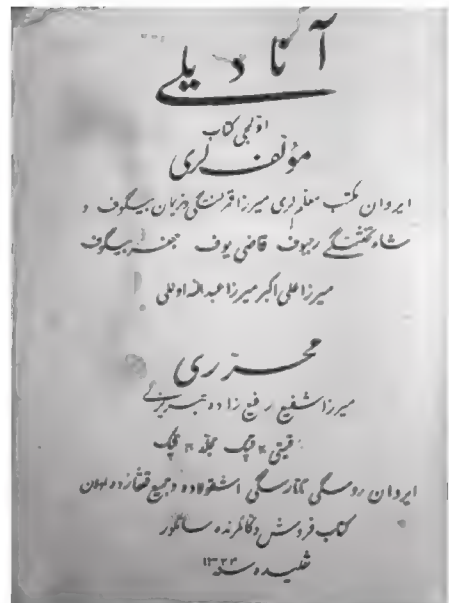 آنا دیلی
اوّلمجی کتاب
مؤلفلری
ایروان مکتب معلملری میرزا نریمان بیگوف و
رحیوف قاضی یوف جعفر بیگوف
میرزا علی اکبر میرزا عبداله اوغلی
محرّری
میرزا شفیع رفیع زاده تبریزی
قیمتی * قپک مجلد * قپک
ایروان روسگی تاتارسگی اشقولاده و جمیع قفقازده اولان
کتاب فروش دکانلرنده ساتلور
تفلیسده سنه ۱۳۲۴